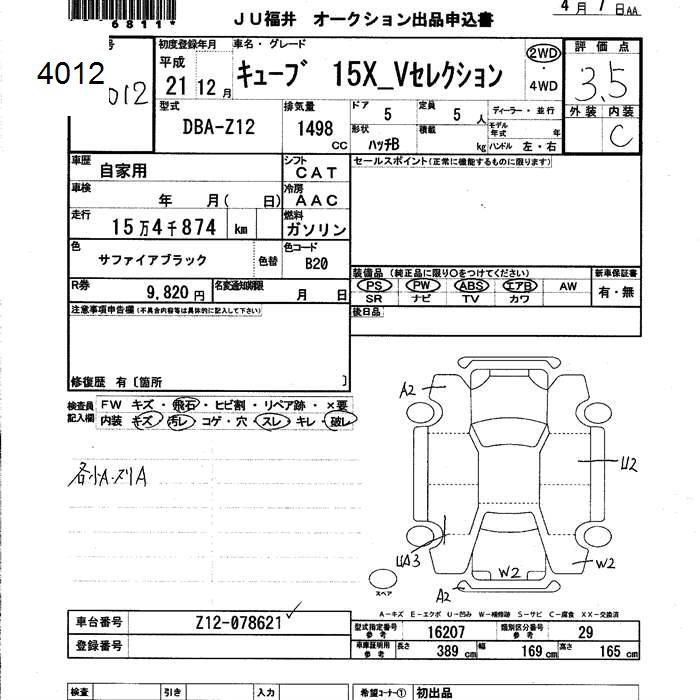 6811*
JU福井 オークション出品申込書
4月7日AA
4012
012
初度登録年月 車名・グレード 評価点
平成 21年12月 キューブ 15X_Vセレクション 2WD・4WD 3.5
型式 排気量 ドア 5 定員 5人 ディーラー・並行 外装 内装
DBA-Z12 1498cc 形状 ハッチB 積載 kg モデル年式 年 ハンドル 左・右 C
車歴 自家用 シフト CAT セールスポイント(正常に機能するものに限ります)
車検 年 月( 日) 冷房 AAC
走行 15万4千874 km 燃料 ガソリン
色 サファイアブラック 色替 色コード B20
装備品(純正品に限り○をつけてください) 新車保証書
R券 9,820円 名変通知期限 月 日 PS PW ABS エアB AW 有・無
SR ナビ TV カワ
注意事項申告欄(不具合内容等は具体的に記入して下さい) 後日品
修復歴 有〔箇所 〕
検査員記入欄 FW キズ・飛石・ヒビ割・リペア跡・×要
内装 キズ・汚レ・コゲ・穴・スレ・キレ・破レ
A2
各小A・刈A
U2
UA3
W2
W2
A2
スペア
A-キズ E-エクボ U-凹み W-補修跡 S-サビ C-腐食 XX-交換済
車台番号 Z12-078621
型式指定番号 参考 16207 類別区分番号 参考 29
登録番号
車庫証明用 参考 長さ 389cm 幅 169cm 高さ 165cm
検査 引き 入力 希望コーナー① 初出品